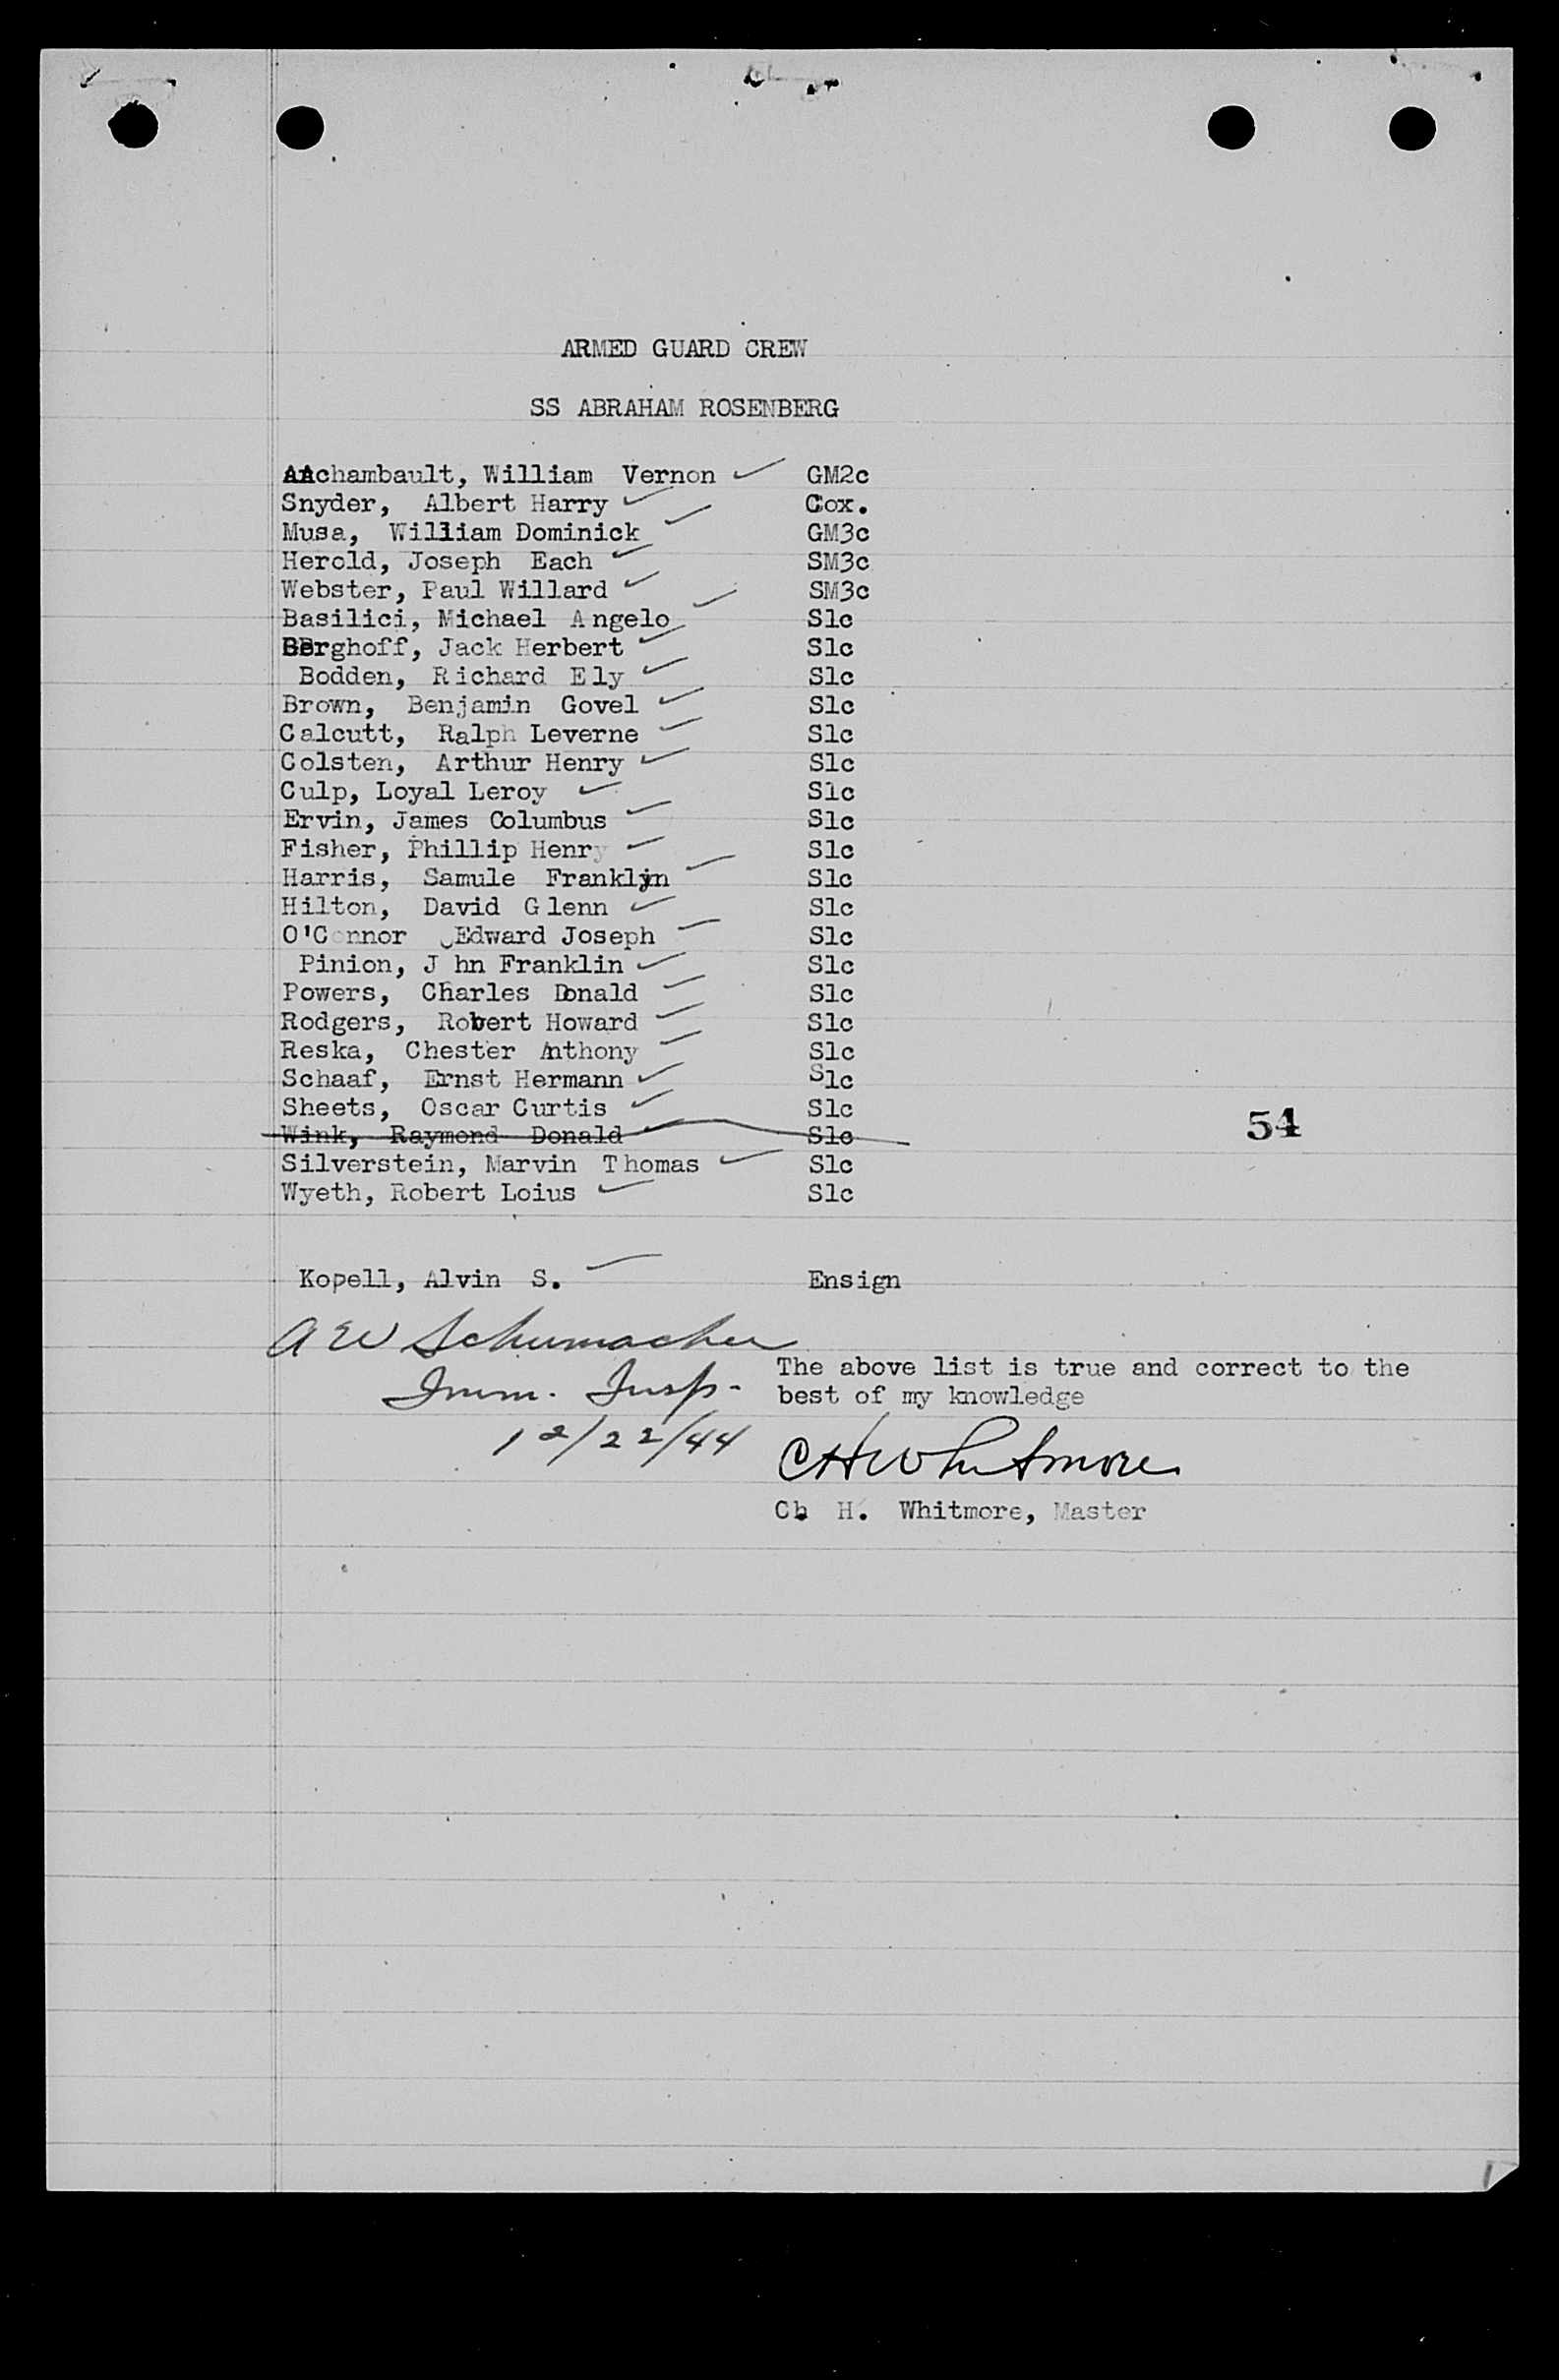 ARMED GUARD CREW
SS ABRAHAM ROSENBERG
AAchambault, William Vernon ✓ GM2c
Snyder, Albert Harry ✓ Cox.
Musa, William Dominick ✓ GM3c
Herold, Joseph Each ✓ SM3c
Webster, Paul Willard ✓ SM3c
Basilici, Michael Angelo ✓ S1c
Berghoff, Jack Herbert ✓ S1c
Bodden, Richard Ely ✓ S1c
Brown, Benjamin Govel ✓ S1c
Calcutt, Ralph Leverne ✓ S1c
Colsten, Arthur Henry ✓ S1c
Culp, Loyal Leroy ✓ S1c
Ervin, James Columbus ✓ S1c
Fisher, Phillip Henry ✓ S1c
Harris, Samule Franklin ✓ S1c
Hilton, David Glenn ✓ S1c
O'Connor ,Edward Joseph ✓ S1c
Pinion, J hn Franklin ✓ S1c
Powers, Charles Donald ✓ S1c
Rodgers, Robert Howard ✓ S1c
Reska, Chester Anthony ✓ S1c
Schaaf, Ernst Hermann ✓ S1c
Sheets, Oscar Curtis ✓ S1c
Wink, Raymond Donald ✓ S1c
54
Silverstein, Marvin Thomas ✓ S1c
Wyeth, Robert Loius ✓ S1c
Kopell, Alvin S. ✓ Ensign
A W Schumacher
Imm. Insp.
12/22/44
The above list is true and correct to the
best of my knowledge
C H Whitmore
C. H. Whitmore, Master